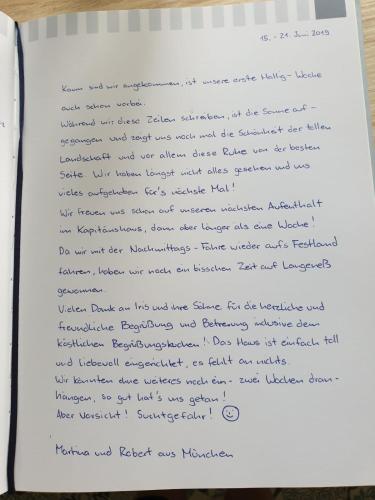 15. - 21. Juni 2019
Kaum sind wir angekommen, ist unsere erste Hallig-Woche
auch schon vorbei.
Während wir diese Zeilen schreiben, ist die Sonne auf-
gegangen und zeigt uns noch mal die Schönheit der tollen
Landschaft und vor allem diese Ruhe von der besten
Seite. Wir haben längst nicht alles gesehen und uns
vieles aufgehoben für's nächste Mal!
Wir freuen uns schon auf unseren nächsten Aufenthalt
im Kapitänshaus, dann aber länger als eine Woche!
Da wir mit der Nachmittags-Fähre wieder aufs Festland
fahren, haben wir noch ein bisschen Zeit auf Langeneß
gewonnen.
Vielen Dank an Iris und ihre Söhne für die herzliche und
freundliche Begrüßung und Betreuung inclusive dem
köstlichen Begrüßungskuchen! Das Haus ist einfach toll
und liebevoll eingerichtet, es fehlt an nichts.
Wir könnten ohne weiteres noch ein - zwei Wochen dran-
hängen, so gut hat's uns getan!
Aber Vorsicht! Suchtgefahr! ☺
Martina und Robert aus München